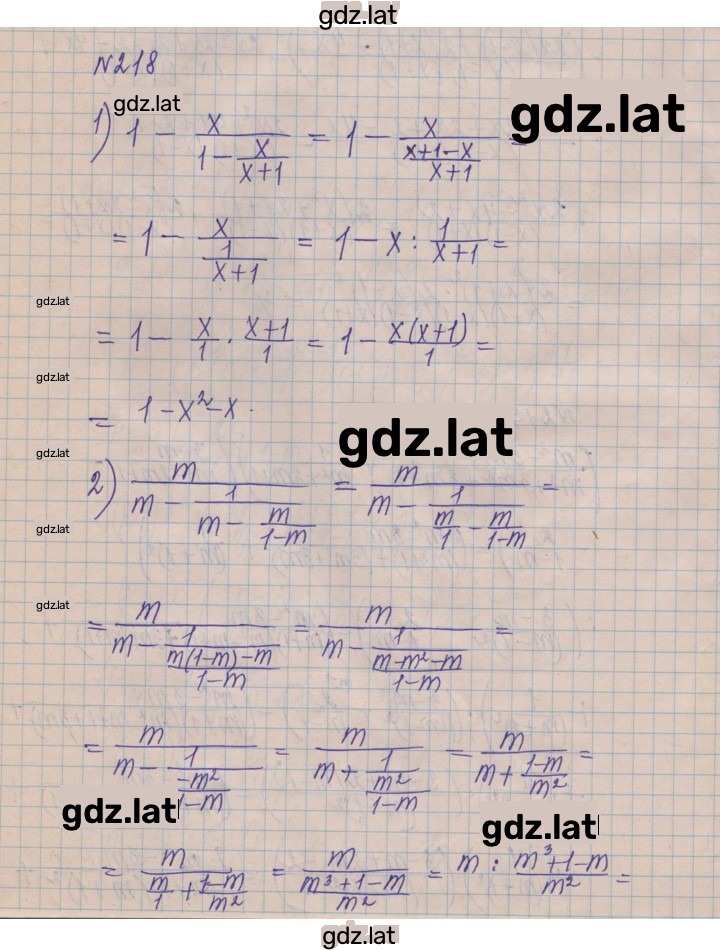 gdz.lat
N218
gdz.lat
gdz.lat
1) 1 - x/(1 - x/(x+1)) = 1 - x/((x+1-x)/(x+1)) =
= 1 - x/(1/(x+1)) = 1 - x : 1/(x+1) =
gdz.lat
= 1 - x/1 · (x+1)/1 = 1 - x(x+1)/1 =
gdz.lat
= 1 - x² - x.
gdz.lat
gdz.lat
2) m/(m - 1/(m - m/(1-m))) = m/(m - 1/(m/1 - m/(1-m))) =
gdz.lat
gdz.lat
= m/(m - 1/((m(1-m)-m)/(1-m))) = m/(m - 1/((m-m²-m)/(1-m))) =
= m/(m - 1/(-m²/(1-m))) = m/(m + 1/(m²/(1-m))) = m/(m + (1-m)/m²) =
gdz.lat
gdz.lat
= m/(m/1 + (1-m)/m²) = m/((m³+1-m)/m²) = m : (m³+1-m)/m² =
gdz.lat